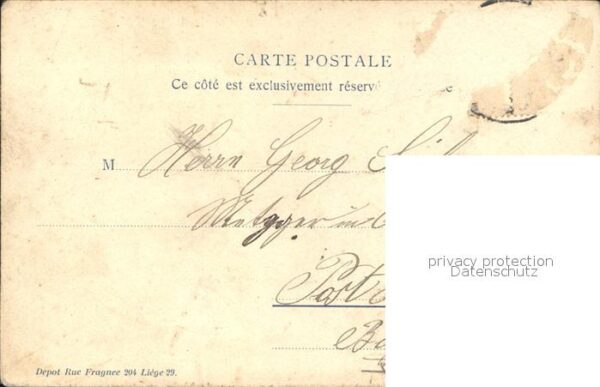 CARTE POSTALE
Ce côté est exclusivement réservé
M Herrn Georg
Metzger in
privacy protection
Datenschutz
Depot Rue Fragnee 204 Liége 29.